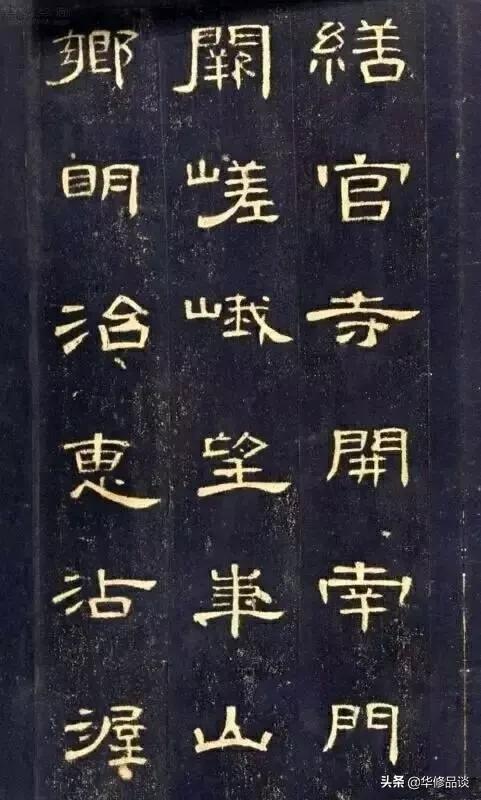 繕官寺開南門
闕嵯峨望華山
鄉明治惠沾渥
头条 @华修品谈